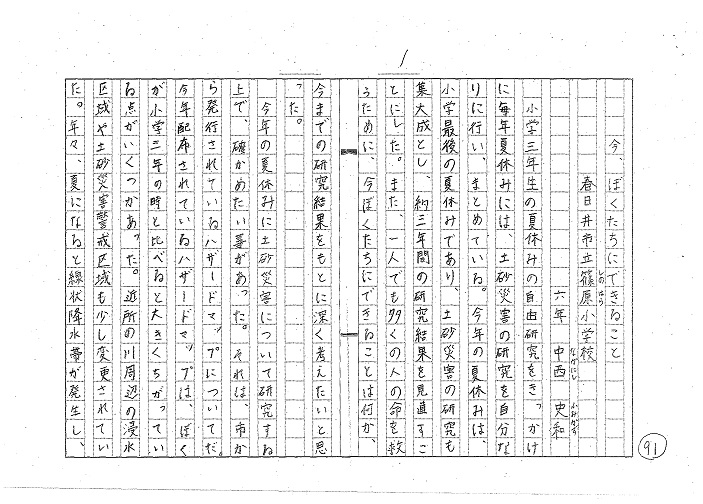 1
91
今、ぼくたちにできること
春日井市立篠原小学校
しのはら
六年 中西 史和
なかにし ふみかず
小学三年生の夏休みの自由研究をきっかけ
に毎年夏休みには、土砂災害の研究を自分な
りに行い、まとめている。今年の夏休みは、
小学最後の夏休みであり、土砂災害の研究も
集大成とし、約三年間の研究結果を見直すこ
とにした。また、一人でも多くの人の命を救
うために、今ぼくたちにできることは何か、
今までの研究結果をもとに深く考えたいと思
った。
今年の夏休みに土砂災害について研究する
上で、確かめたい事があった。それは、市か
ら発行されているハザードマップについてだ。
今年配布されているハザードマップは、ぼく
が小学三年の時と比べると大きくちがってい
る点がいくつかあった。近所の川周辺の浸水
区域や土砂災害警戒区域も少し変更されてい
た。年々、夏になると線状降水帯が発生し、